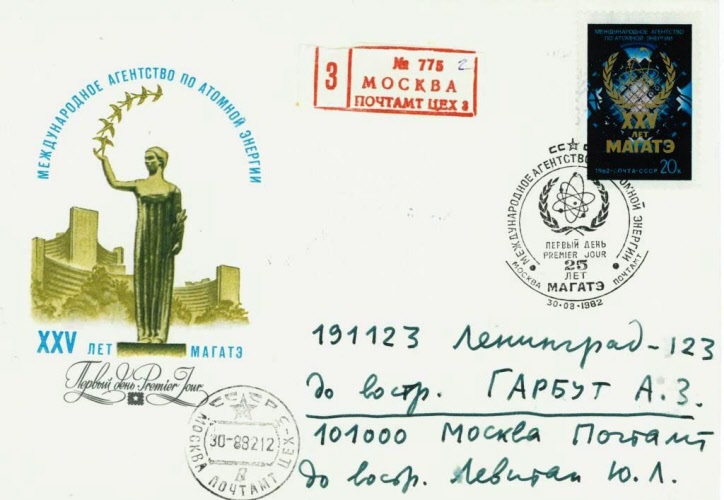 МЕЖДУНАРОДНОЕ АГЕНТСТВО ПО АТОМНОЙ ЭНЕРГИИ
XXV ЛЕТ МАГАТЭ
Первый день Premier Jour
З
№ 775 2
МОСКВА
ПОЧТАМТ ЦЕХ 3
МЕЖДУНАРОДНОЕ АГЕНТСТВО
ПО АТОМНОЙ ЭНЕРГИИ
XXV
ЛЕТ
МАГАТЭ
1982·ПОЧТА·СССР 20к
СССР
МЕЖДУНАРОДНОЕ АГЕНТСТВО ПО АТОМНОЙ ЭНЕРГИИ
ПЕРВЫЙ ДЕНЬ
PREMIER JOUR
25
ЛЕТ
МАГАТЭ
МОСКВА ПОЧТАМТ
30-08-1982
191123 Ленинград-123
до востр. ГАРБУТ А.З.
101000 Москва Почтамт
до востр. Левитан Ю.Л.
СССР
30-88212
МОСКВА ПОЧТАМТ ЦЕХ-3